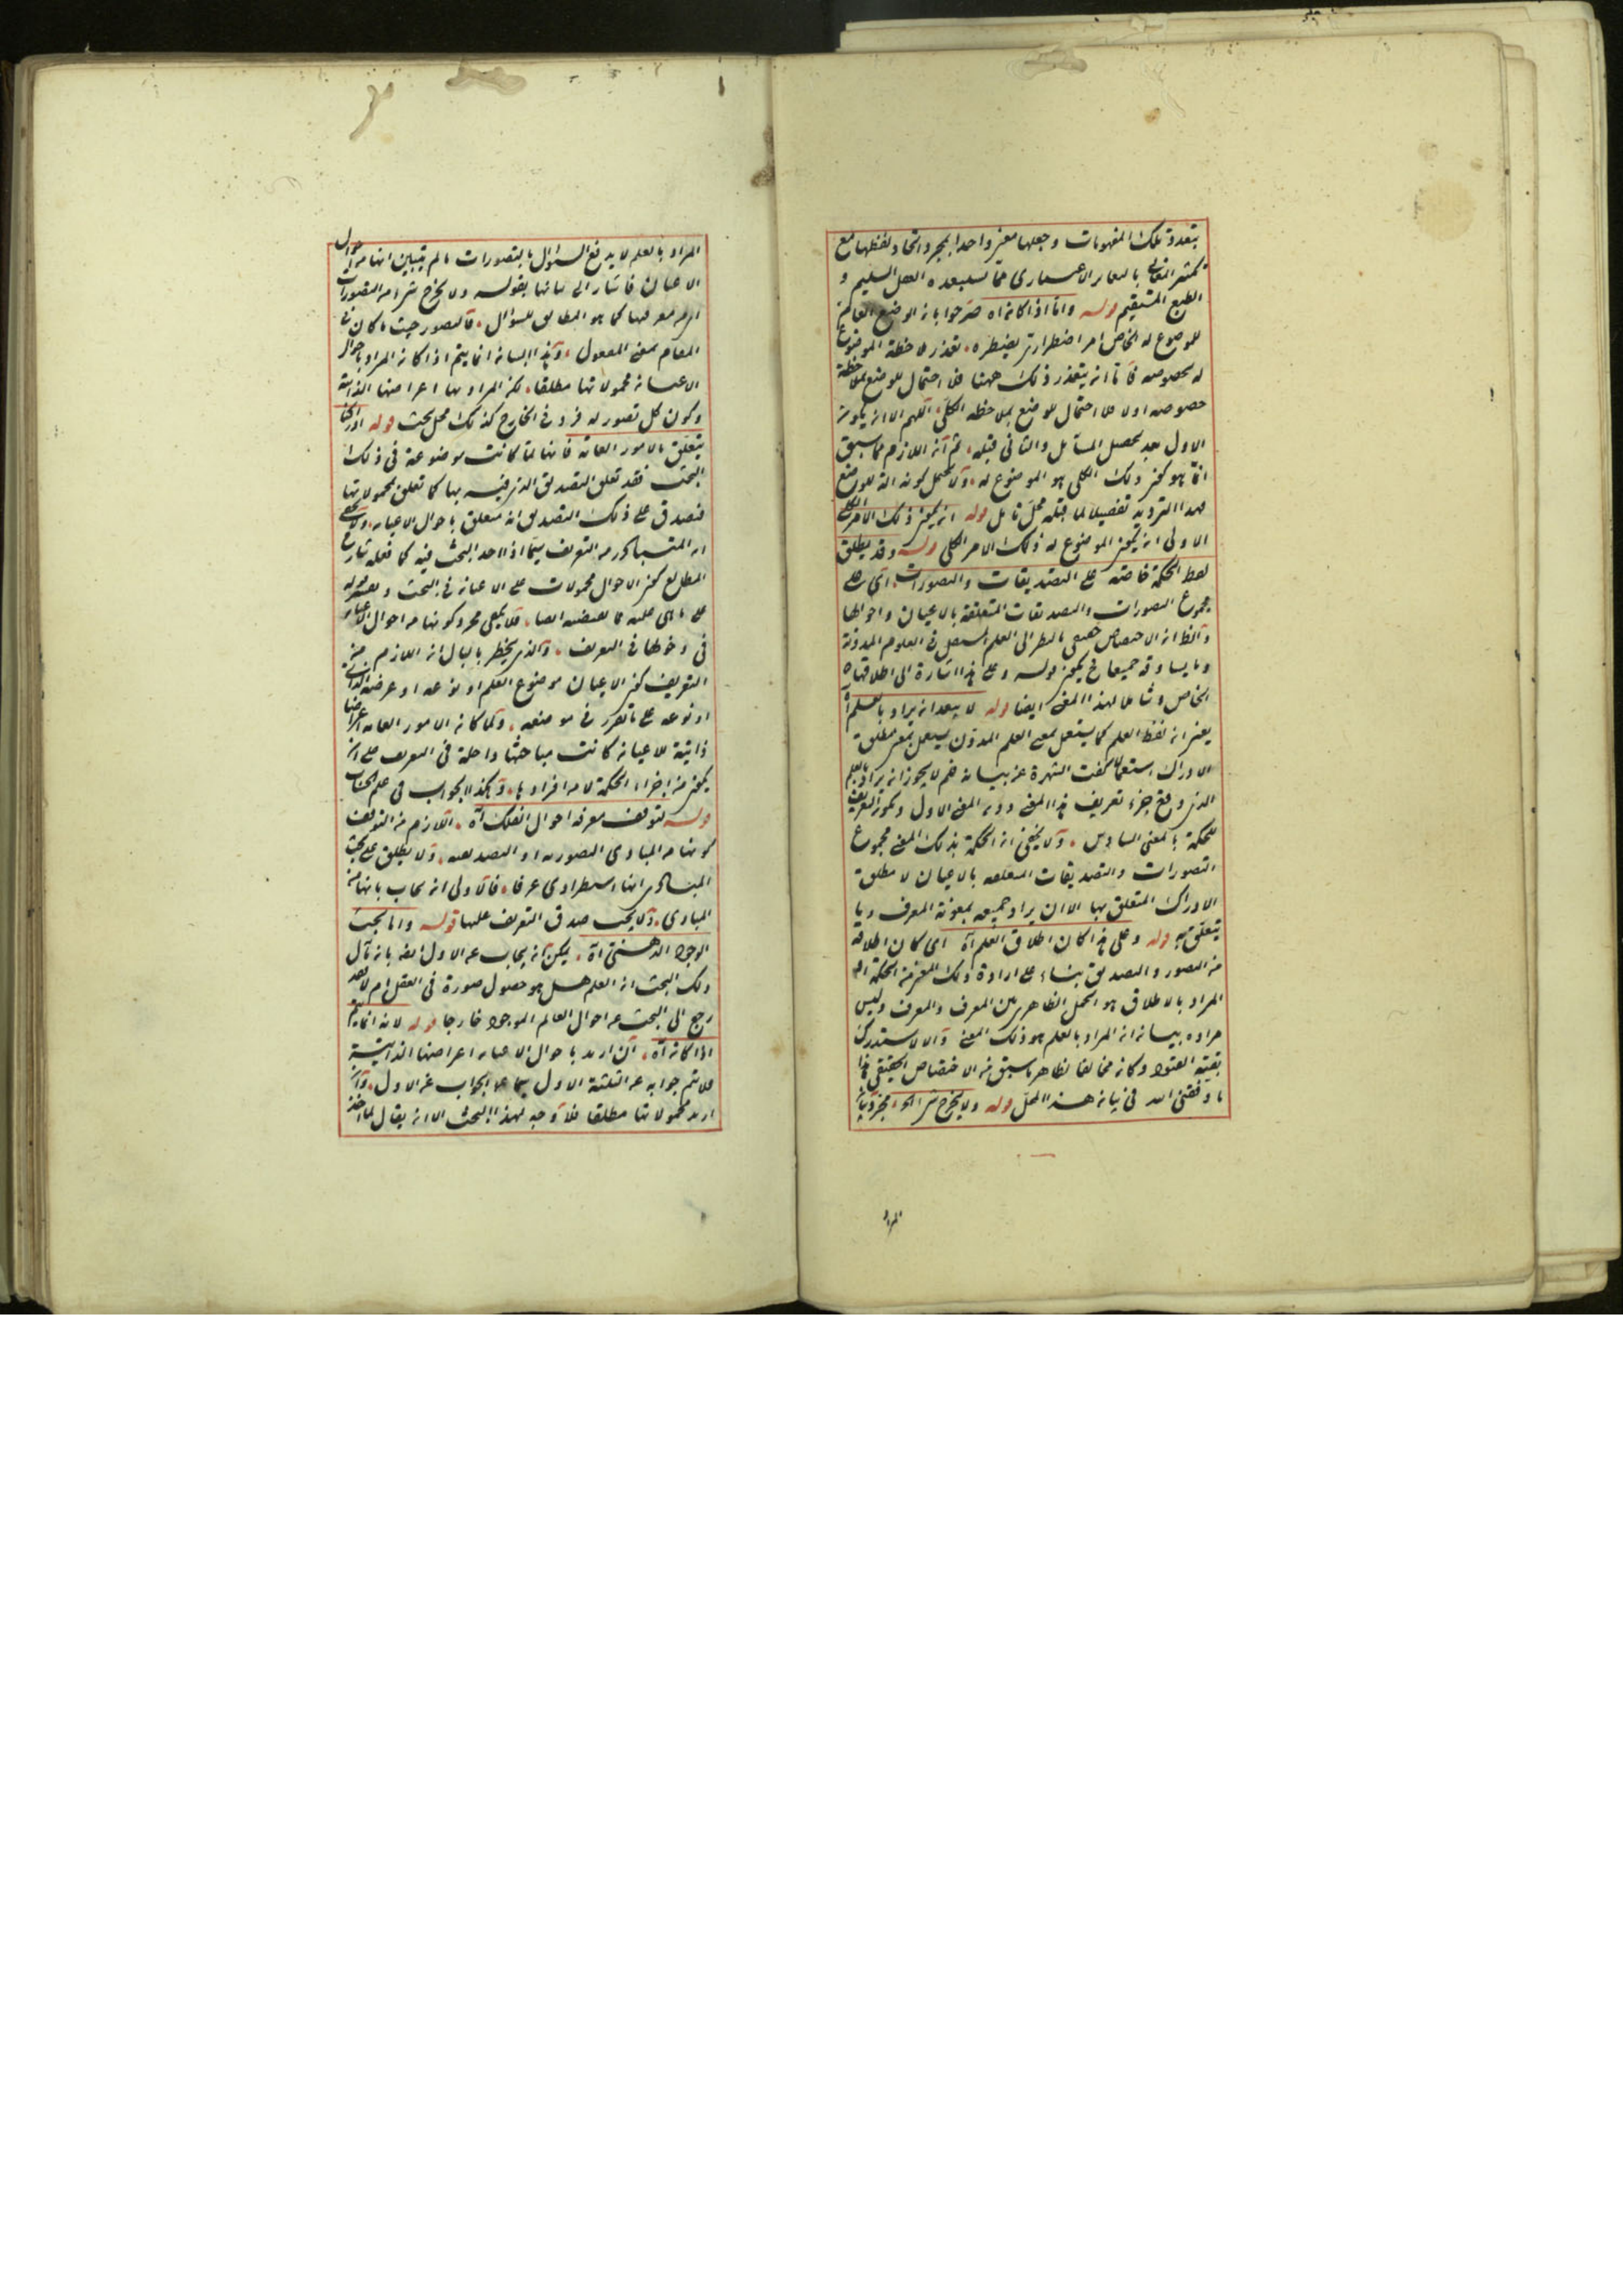 بتعدد تلك المفهومات وجعلها معنى واحدا بمجرد اتحاد لفظها مع
تكثر المعانى بالتغاير الاعتبارى مما يستبعده العقل السليم و
الطبع المستقيم قوله واما اذا كان اه صرحوا بان الوضع العام
للموضوع له الخاص امر اضطرارى يضطره تعذر ملاحظة الموضوع
له بخصوصه فاما ان يتعذر ذلك ههنا فلا احتمال للوضع بملاحظة
خصوصه اولا فلا احتمال للوضع بملاحظة الكلى اللهم الا ان يكون
الاول بعد تحصل المسائل والثانى قبله ثم ان اللازم مما سبق
انما هو كون ذلك الكلى هو الموضوع له ولا يحتمل كونه الة للوضع
فهذا الترديد تفصيلا لما قبله محل تامل قوله ان يكون ذلك الامر الكلى
الاولى ان يكون الموضوع له ذلك الامر الكلى قوله وقد يطلق
لفظ الحكمة خاصة على التصديقات والتصورات اى على
مجموع التصورات والتصديقات المتعلقة بالاعيان واحوالها
والظ ان الاختصاص حقيقى بالنظر الى العلم المستعمل فى العلوم المدونة
وما يساوقه جميعا فح يكون قوله وعلى هذا اشارة الى اطلاقها
الخاص وشاملا لهذا المعنى ايضا قوله لا يبعد ان يراد بالعلم اه
يعنى ان لفظ العلم كما يستعمل بمعنى العلم المدون يستعمل بمعنى مطلق
الادراك استعمالا كفت الشهرة عن بيانه فلم لا يجوز ان يراد بالعلم
الذى وقع جزء تعريف هذا المعنى دون المعنى الاول ويكون التعريف
للحكمة بالمعنى السادس ولا يخفى ان الحكمة بذلك المعنى مجموع
التصورات والتصديقات المتعلقة بالاعيان لا مطلق
الادراك المتعلق بها الا ان يراد جميعه بمعونة المعرف وما
يتعلق به قوله وعلى هذا كان اطلاق العلم اه اى كان اطلاقه
من التصور والتصديق بناء على ارادة ذلك المعنى من الحكمة اذ
المراد بالاطلاق هو الحمل الظاهر بين المعرف والمعرف وليس
مراده بيان ان المراد بالعلم هو ذلك المعنى والا لاستدرك
بقية القيود وكان مخالفا لظاهر ما سبق من الاختصاص الحقيقى هذا
ما وفقنى الله فى بيان هذا المحل قوله ولا يخرج شىء الخ مجرد بيان
المراد
المراد بالعلم لا يدفع السؤال بالتصورات ما لم يتبين انها من احوال
الاعيان فاشار الى بيانها بقوله ولا يخرج شىء من التصورات
اى من معرفتها كما هو المطابق للسؤال فالتصور حيث ما كان فى
المقام بمعنى المفعول وهذا البيان انما يتم اذا كان المراد باحوال
الاعيان محمولاتها مطلقا لكن المراد بها اعراضها الذاتية
وكون كل تصور له فرد فى الخارج كذلك محل بحث قوله
يتعلق بالامور العامة فانها لما كانت موضوعة فى ذلك
البحث فقد تعلق التصديق الذى فيه بها كما تعلق بمحمولاتها
فصدق على ذلك التصديق انه متعلق باحوال الاعيان ولا يخفى
ان المتبادر من التعريف سيما اذا احد البحث فيه كما فعله شارح
المطالع كون الاحوال محمولات على الاعيان فى البحث
على ما هى عليه مما يقتضيه ايضا فلا يكفى مجرد كونها من احوال الاعيان
فى دخولها فى التعريف والذى يخطر بالبال ان اللازم من
التعريف كون الاعيان موضوع العلم او نوعه او عرضه الذاتى
او نوعه على ما تقرر فى موضعه ولما كان الامور العامة اعراضا
ذاتية للاعيان كانت مباحثها داخلة فى التعريف على ان
يكون من اجزاء الحكمة لا من افرادها وهكذا الجواب فى علم الحساب
قوله لتوقف معرفة احوال الفلك اه اللازم من التوقف
كونها من المبادى التصورية او التصديقية ولا يطلق على بحث
المبادى انها استطرادى عرفا فالاولى ان يجاب بانها من
المبادى ولا يجب صدق التعريف عليها قوله واما بحث
الوجود الذهنى اه يمكن ان يجاب عن الاول ايضا بان مآل
ذلك البحث ان العلم هل هو حصول صورة فى العقل ام لا فقد
رجع الى البحث عن احوال العالم الموجود خارجا قوله لانه انما يتم
اذا كان اه ان اريد باحوال الاعيان اعراضها الذاتية
فلا تم جوابه عن الثلثة الاول سيما الجواب عن الاول وان
اريد محمولاتها مطلقا فلا وجه لهذا البحث الا ان يقال لما اخذ